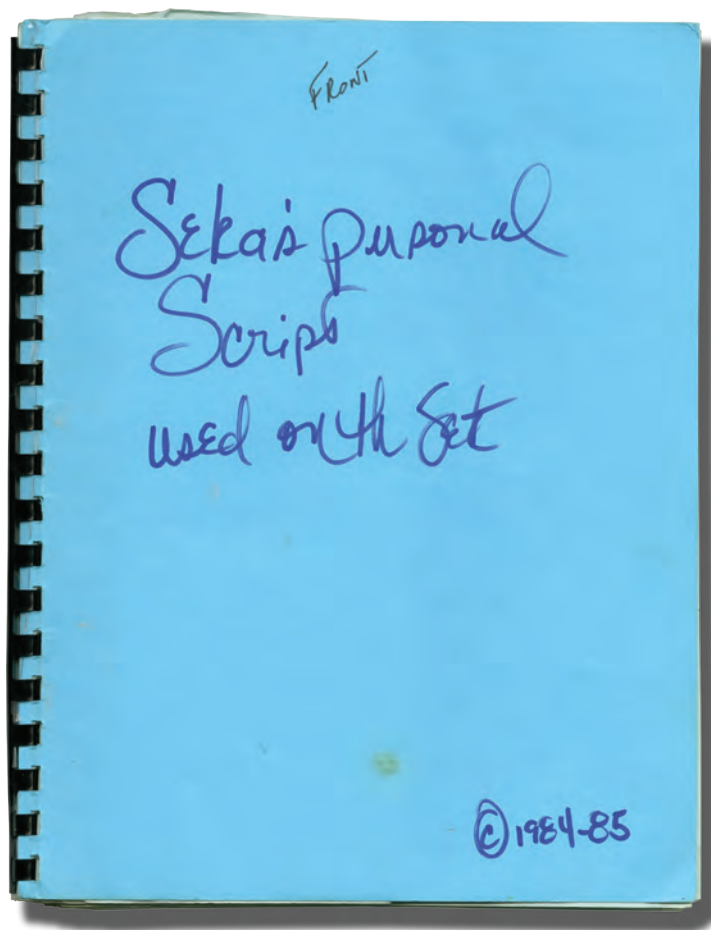 FRONT
Seka's personal
Script
used on th Set
© 1984-85